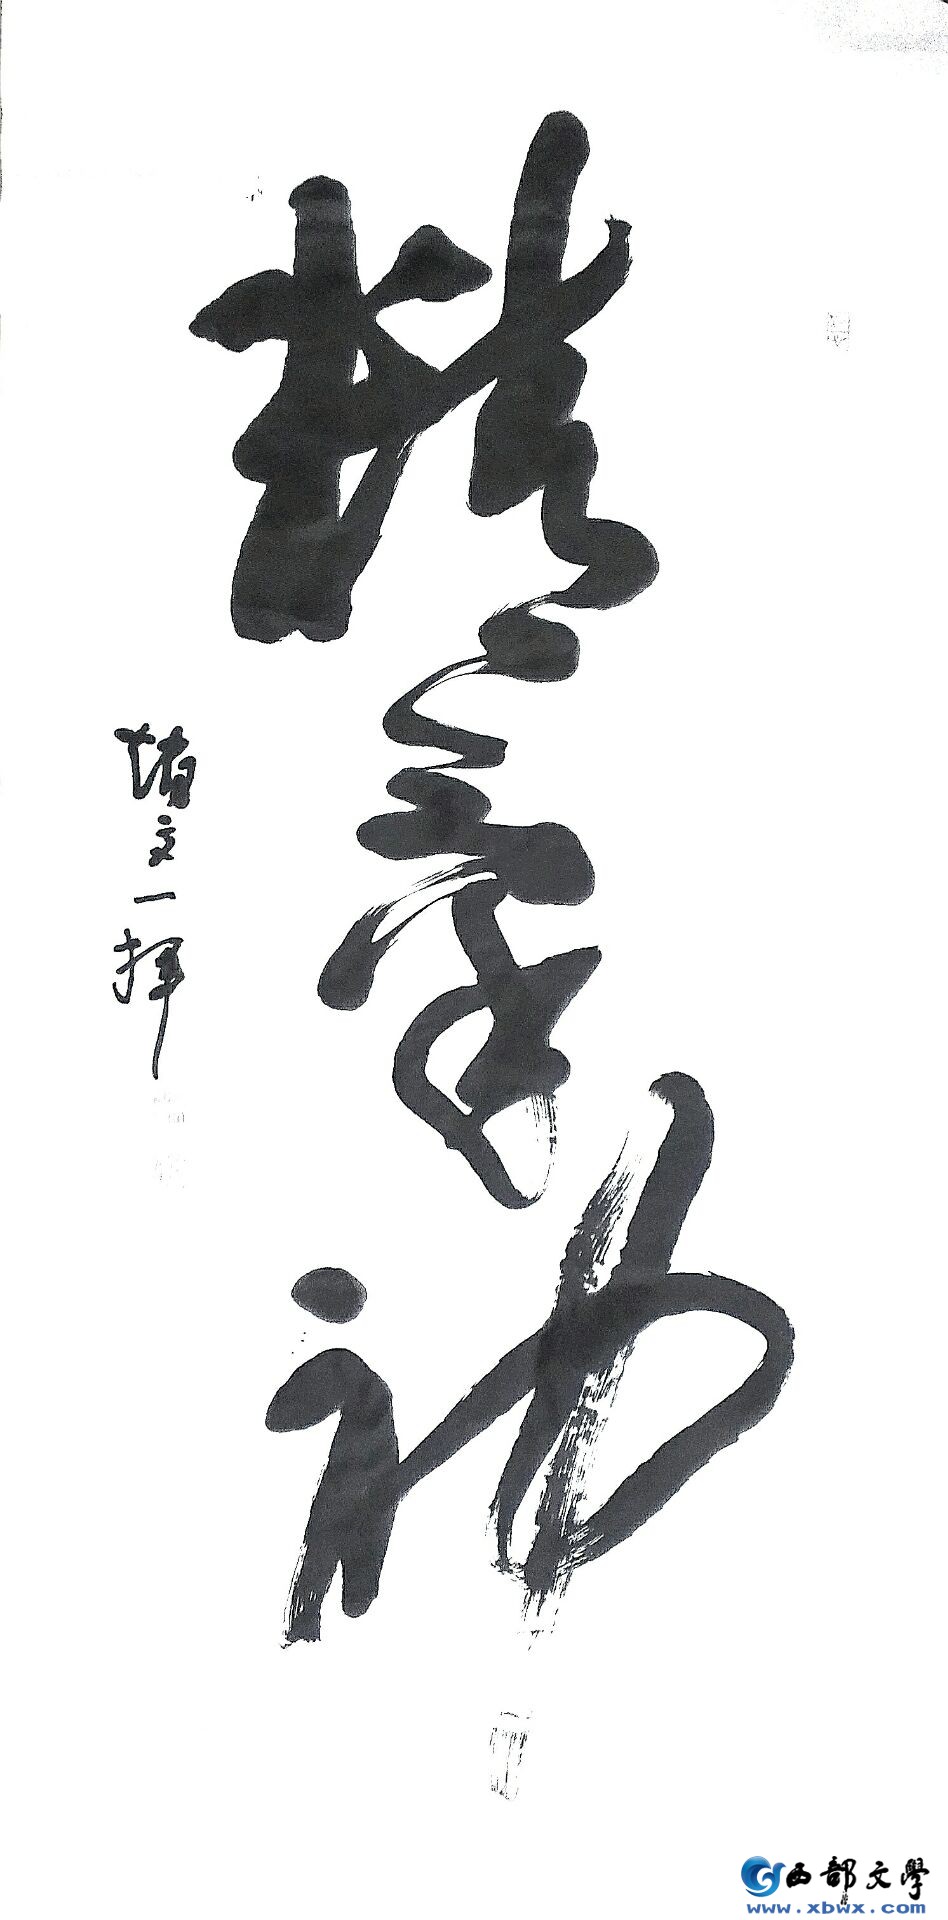 精氣神
文一挥
西部文學
www.xbwx.com